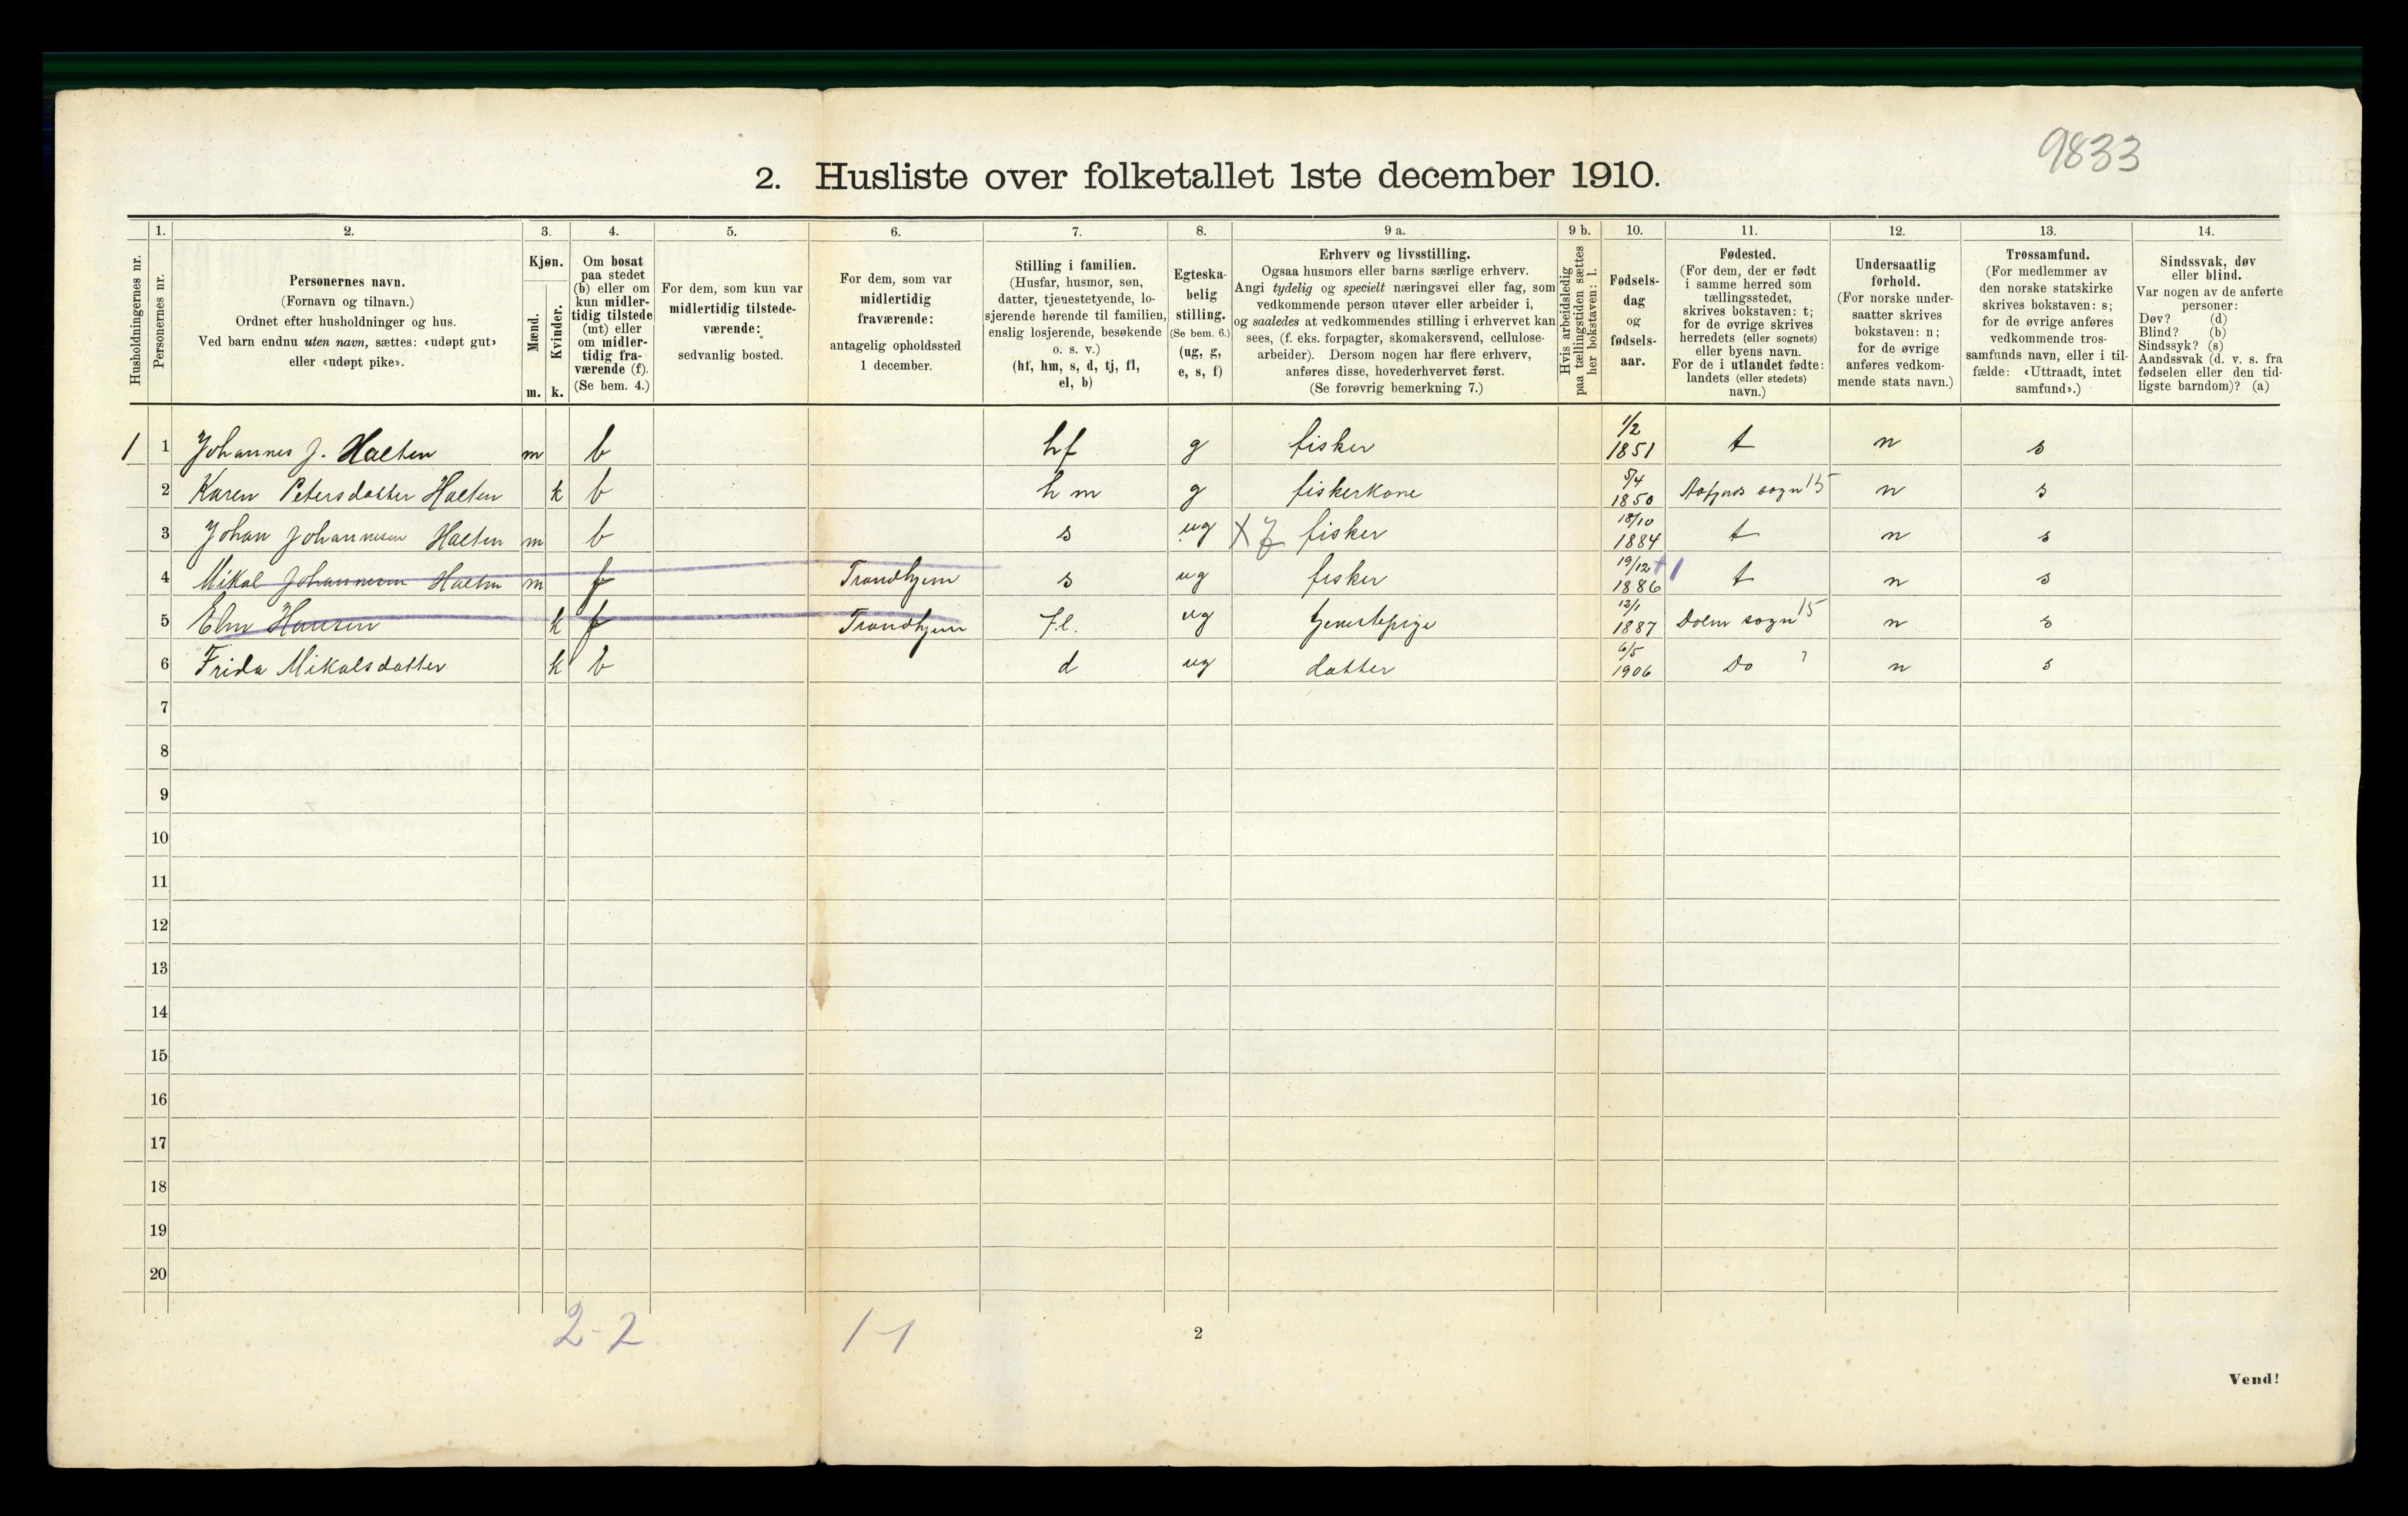 9833
2. Husliste over folketallet 1ste december 1910.
Husholdningernes nr.
1.
Personernes nr.
2.
Personernes navn.
(Fornavn og tilnavn.)
Ordnet efter husholdninger og hus.
Ved barn endnu uten navn, sættes: «udøpt gut»
eller «udøpt pike».
3.
Kjøn.
Mænd.
Kvinder.
m. k.
4.
Om bosat
paa stedet
(b) eller om
kun midler-
tidig tilstede
(mt) eller
om midler-
tidig fra-
værende (f).
(Se bem. 4.)
5.
For dem, som kun var
midlertidig tilstede-
værende:
sedvanlig bosted.
6.
For dem, som var
midlertidig
fraværende:
antagelig opholdssted
1 december.
7.
Stilling i familien.
(Husfar, husmor, søn,
datter, tjenestetyende, lo-
sjerende hørende til familien,
enslig losjerende, besøkende
o. s. v.)
(hf, hm, s, d, tj, fl,
el, b)
8.
Egteska-
belig
stilling.
(Se bem. 6.)
(ug, g,
e, s, f)
9 a.
Erhverv og livsstilling.
Ogsaa husmors eller barns særlige erhverv.
Angi tydelig og specielt næringsvei eller fag, som
vedkommende person utøver eller arbeider i,
og saaledes at vedkommendes stilling i erhvervet kan
sees, (f. eks. forpagter, skomakersvend, cellulose-
arbeider). Dersom nogen har flere erhverv,
anføres disse, hovederhvervet først.
(Se forøvrig bemerkning 7.)
9 b.
Hvis arbeidsledig
paa tællingstiden sættes
her bokstaven: l.
10.
Fødsels-
dag
og
fødsels-
aar.
11.
Fødested.
(For dem, der er født
i samme herred som
tællingsstedet,
skrives bokstaven: t;
for de øvrige skrives
herredets (eller sognets)
eller byens navn.
For de i utlandet fødte:
landets (eller stedets)
navn.)
12.
Undersaatlig
forhold.
(For norske under-
saatter skrives
bokstaven: n;
for de øvrige
anføres vedkom-
mende stats navn.)
13.
Trossamfund.
(For medlemmer av
den norske statskirke
skrives bokstaven: s;
for de øvrige anføres
vedkommende tros-
samfunds navn, eller i til-
fælde: «Uttraadt, intet
samfund».)
14.
Sindssvak, døv
eller blind.
Var nogen av de anførte
personer:
Døv? (d)
Blind? (b)
Sindssyk? (s)
Aandssvak (d. v. s. fra
fødselen eller den tid-
ligste barndom)? (a)
1 1 Johannes J. Halten m b hf g fisker 1/2 1851 t n s
2 Karen Petersdatter Halten k b h m g fiskerkone 5/4 1850 sogn 15 n s
3 Johan Johannesen Halten m b s ug X 7 fisker 18/10 1884 t n s
4 Mikal Johannesen Halten m f Trondhjem s ug fisker 19/12 1886 +1 t n s
5 Elen Hansen k f Trondhjem fl. ug tjenestepige 12/1 1887 Dolm sogn 15 n s
6 Frida Mikalsdatter k b d ug datter 6/5 1906 Do n s
7
8
9
10
11
12
13
14
15
16
17
18
19
20
2-2 1-1
2
Vend!